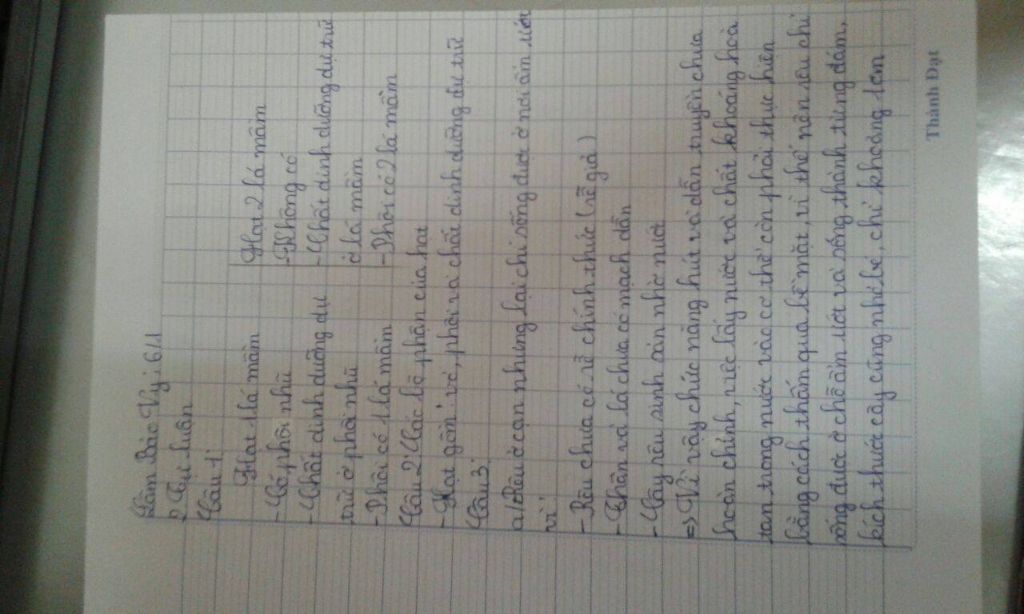 Lâm Bảo Vy; 6/1
2) Tự luân
Câu 1:
Hạt 1 lá mầm Hạt 2 lá mầm
- Có phôi nhũ - Không có
- Chất dinh dưỡng dự - Chất dinh dưỡng dự trữ
trữ ở phôi nhũ ở lá mầm
- Phôi có 1 lá mầm - Phôi có 2 lá mầm
Câu 2: Các bộ phận của hạt
- Hạt gồn: vỏ, phôi và chất dinh dưỡng dự trữ
Câu 3:
a/ Rêu ở cạn nhưng lại chỉ sống được ở nơi ẩm ướt
vì:
- Rêu chưa có rễ chính thức (rễ giả)
- Thân và lá chưa có mạch dẫn
- Cây rêu sinh sản nhờ nước
=> Vì vậy chức năng hút và dẫn truyền chưa
hoàn chỉnh, việc lấy nước và chất khoáng hoà
tan trong nước vào cơ thể còn phải thực hiên
bằng cách thấm qua bề mặt, vì thế nên rêu chỉ
sống được ở chỗ ẩm ướt và sống thành từng đám,
kích thước cây cũng nhỏ bé, chỉ khoảng 1cm
Thành Đạt